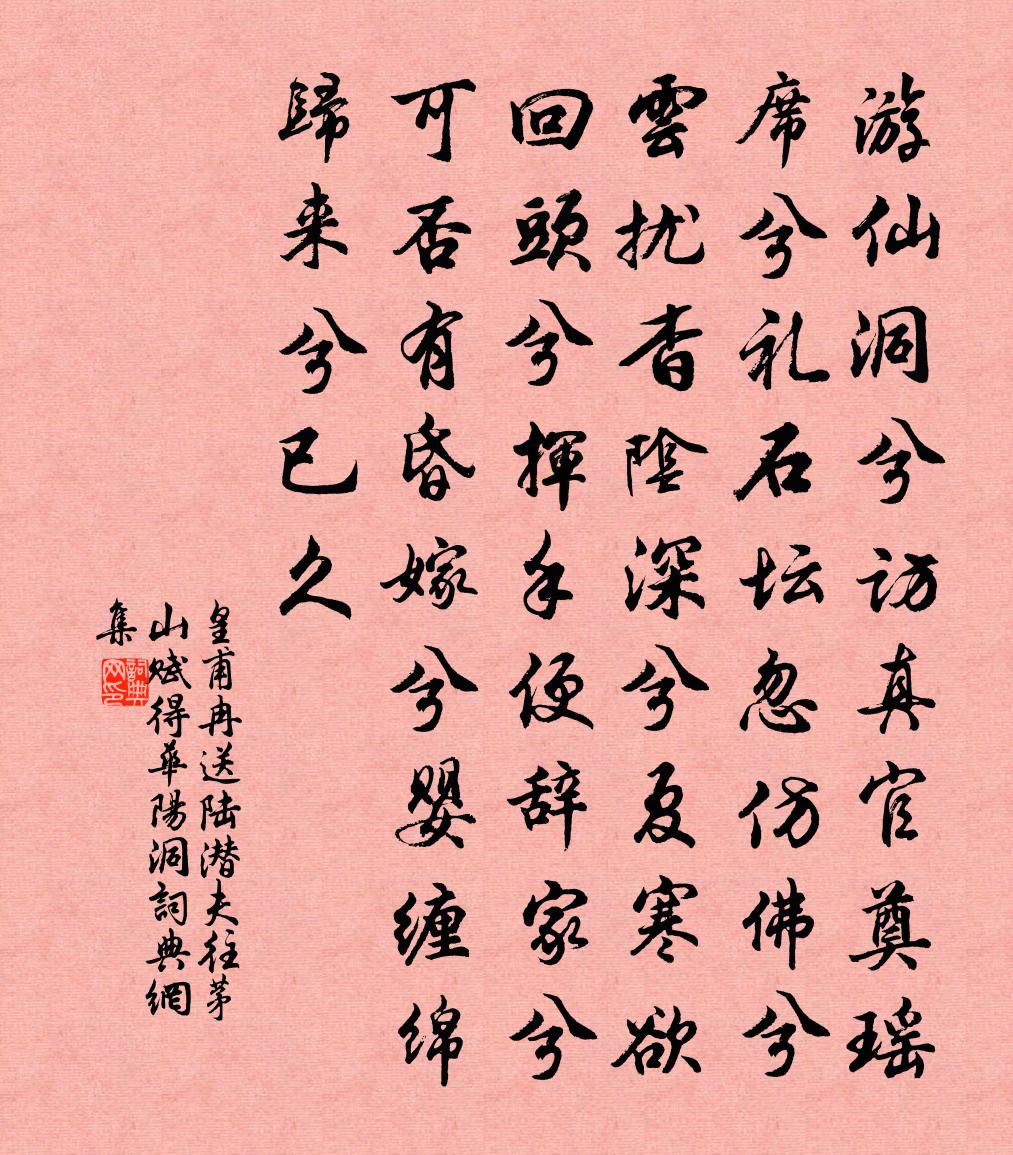 游仙洞兮访真官奠瑶
席兮礼石坛忽仿佛兮
雲扰杳陰深兮夏寒欲
回頭兮揮手便辞家兮
可否有昏嫁兮婴缠绵
歸来兮已久
皇甫冉送陆潜夫往茅
山赋得華陽洞詞典網
集
詞典
网印